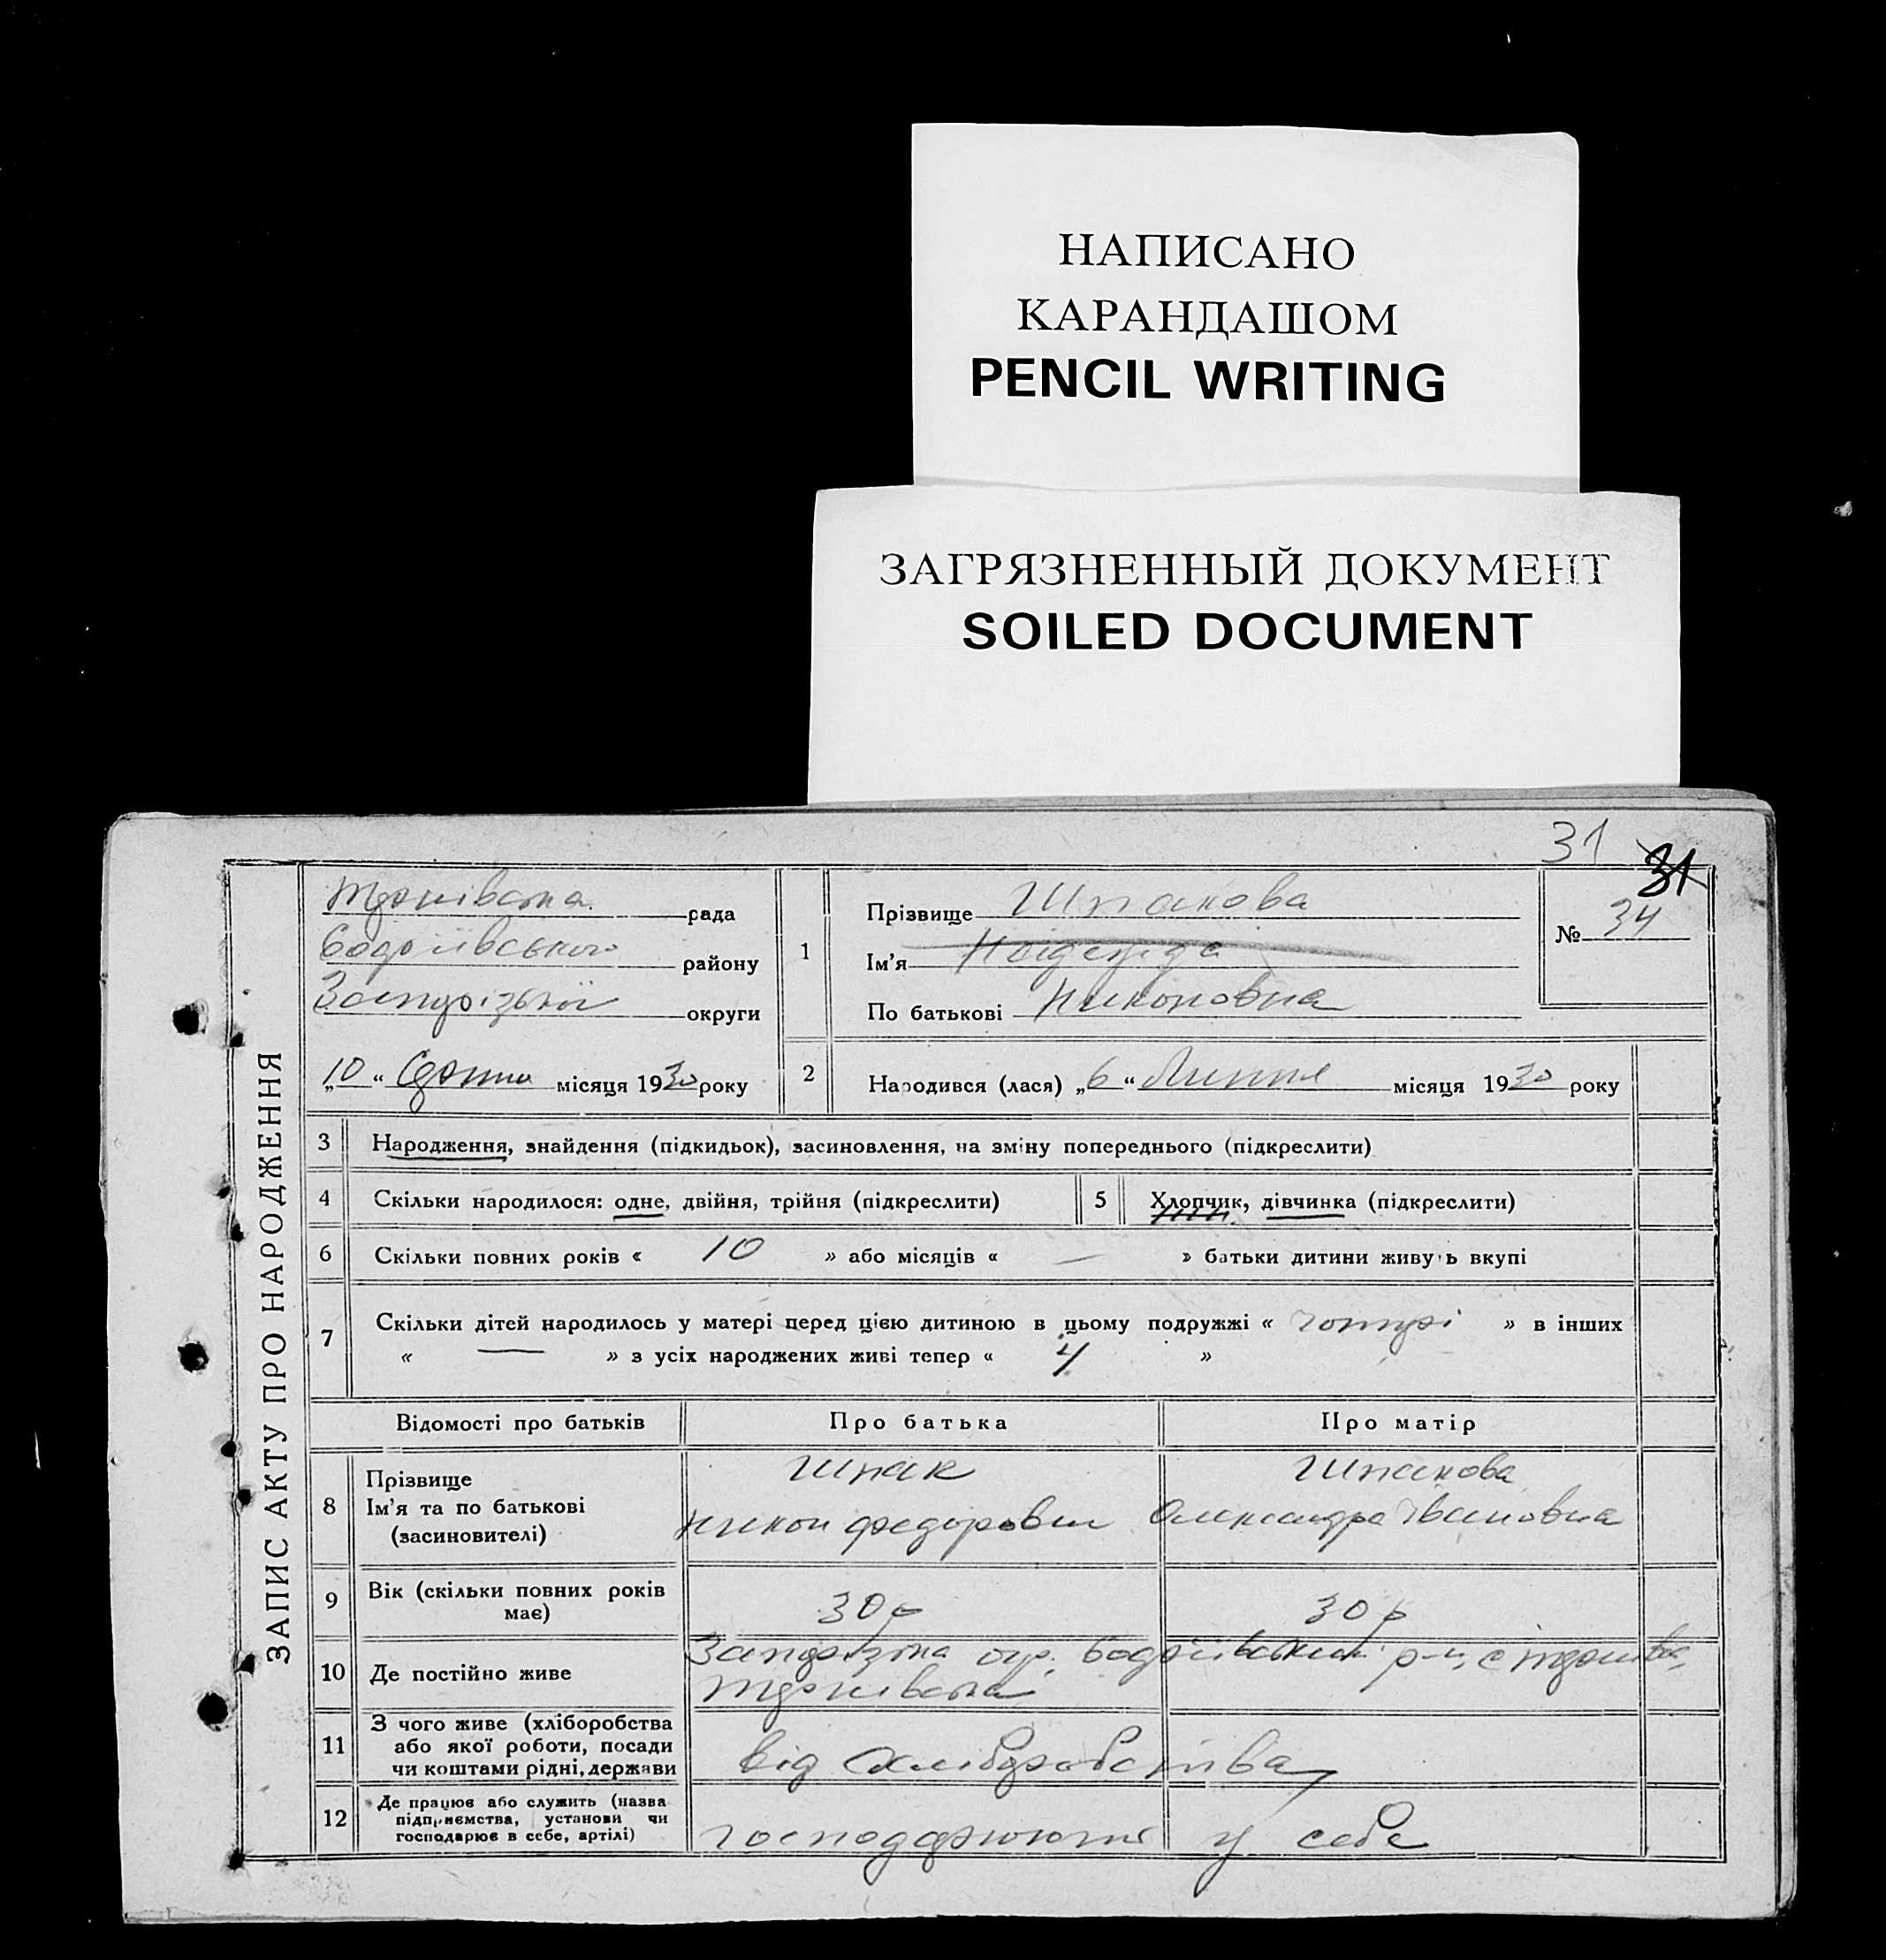 НАПИСАНО
КАРАНДАШОМ
PENCIL WRITING
ЗАГРЯЗНЕННЫЙ ДОКУМЕНТ
SOILED DOCUMENT
31
31
ЗАПИС АКТУ ПРО НАРОДЖЕННЯ
рада
району
округи
„10“ Серпня місяця 1930 року
1
Прізвище Шпакова
Ім'я
По батькові Никоновна
№ 34
2
Народився (лася) „6“ Липня місяця 1930 року
3 Народження, знайдення (підкидьок), засиновлення, на зміну попереднього (підкреслити)
4 Скільки народилося: одне, двійня, трійня (підкреслити) 5 Хлопчик, дівчинка (підкреслити)
6 Скільки повних років « 10 » або місяців « — » батьки дитини живуть вкупі
7 Скільки дітей народилось у матері перед цією дитиною в цьому подружжі « чотирі » в інших
« — » з усіх народжених живі тепер « 4 »
Відомості про батьків Про батька Про матір
8 Прізвище Шпак Шпакова
Ім'я та по батькові Никон Федорович Олександра Івановна
(засиновителі)
9 Вік (скільки повних років має) 30 р 30 р
10 Де постійно живе
11 З чого живе (хліборобства або якої роботи, посади чи коштами рідні, держави від хліборобства
12 Де працює або служить (назва підприємства, установи чи господарює в себе, артілі) господарюють у себе